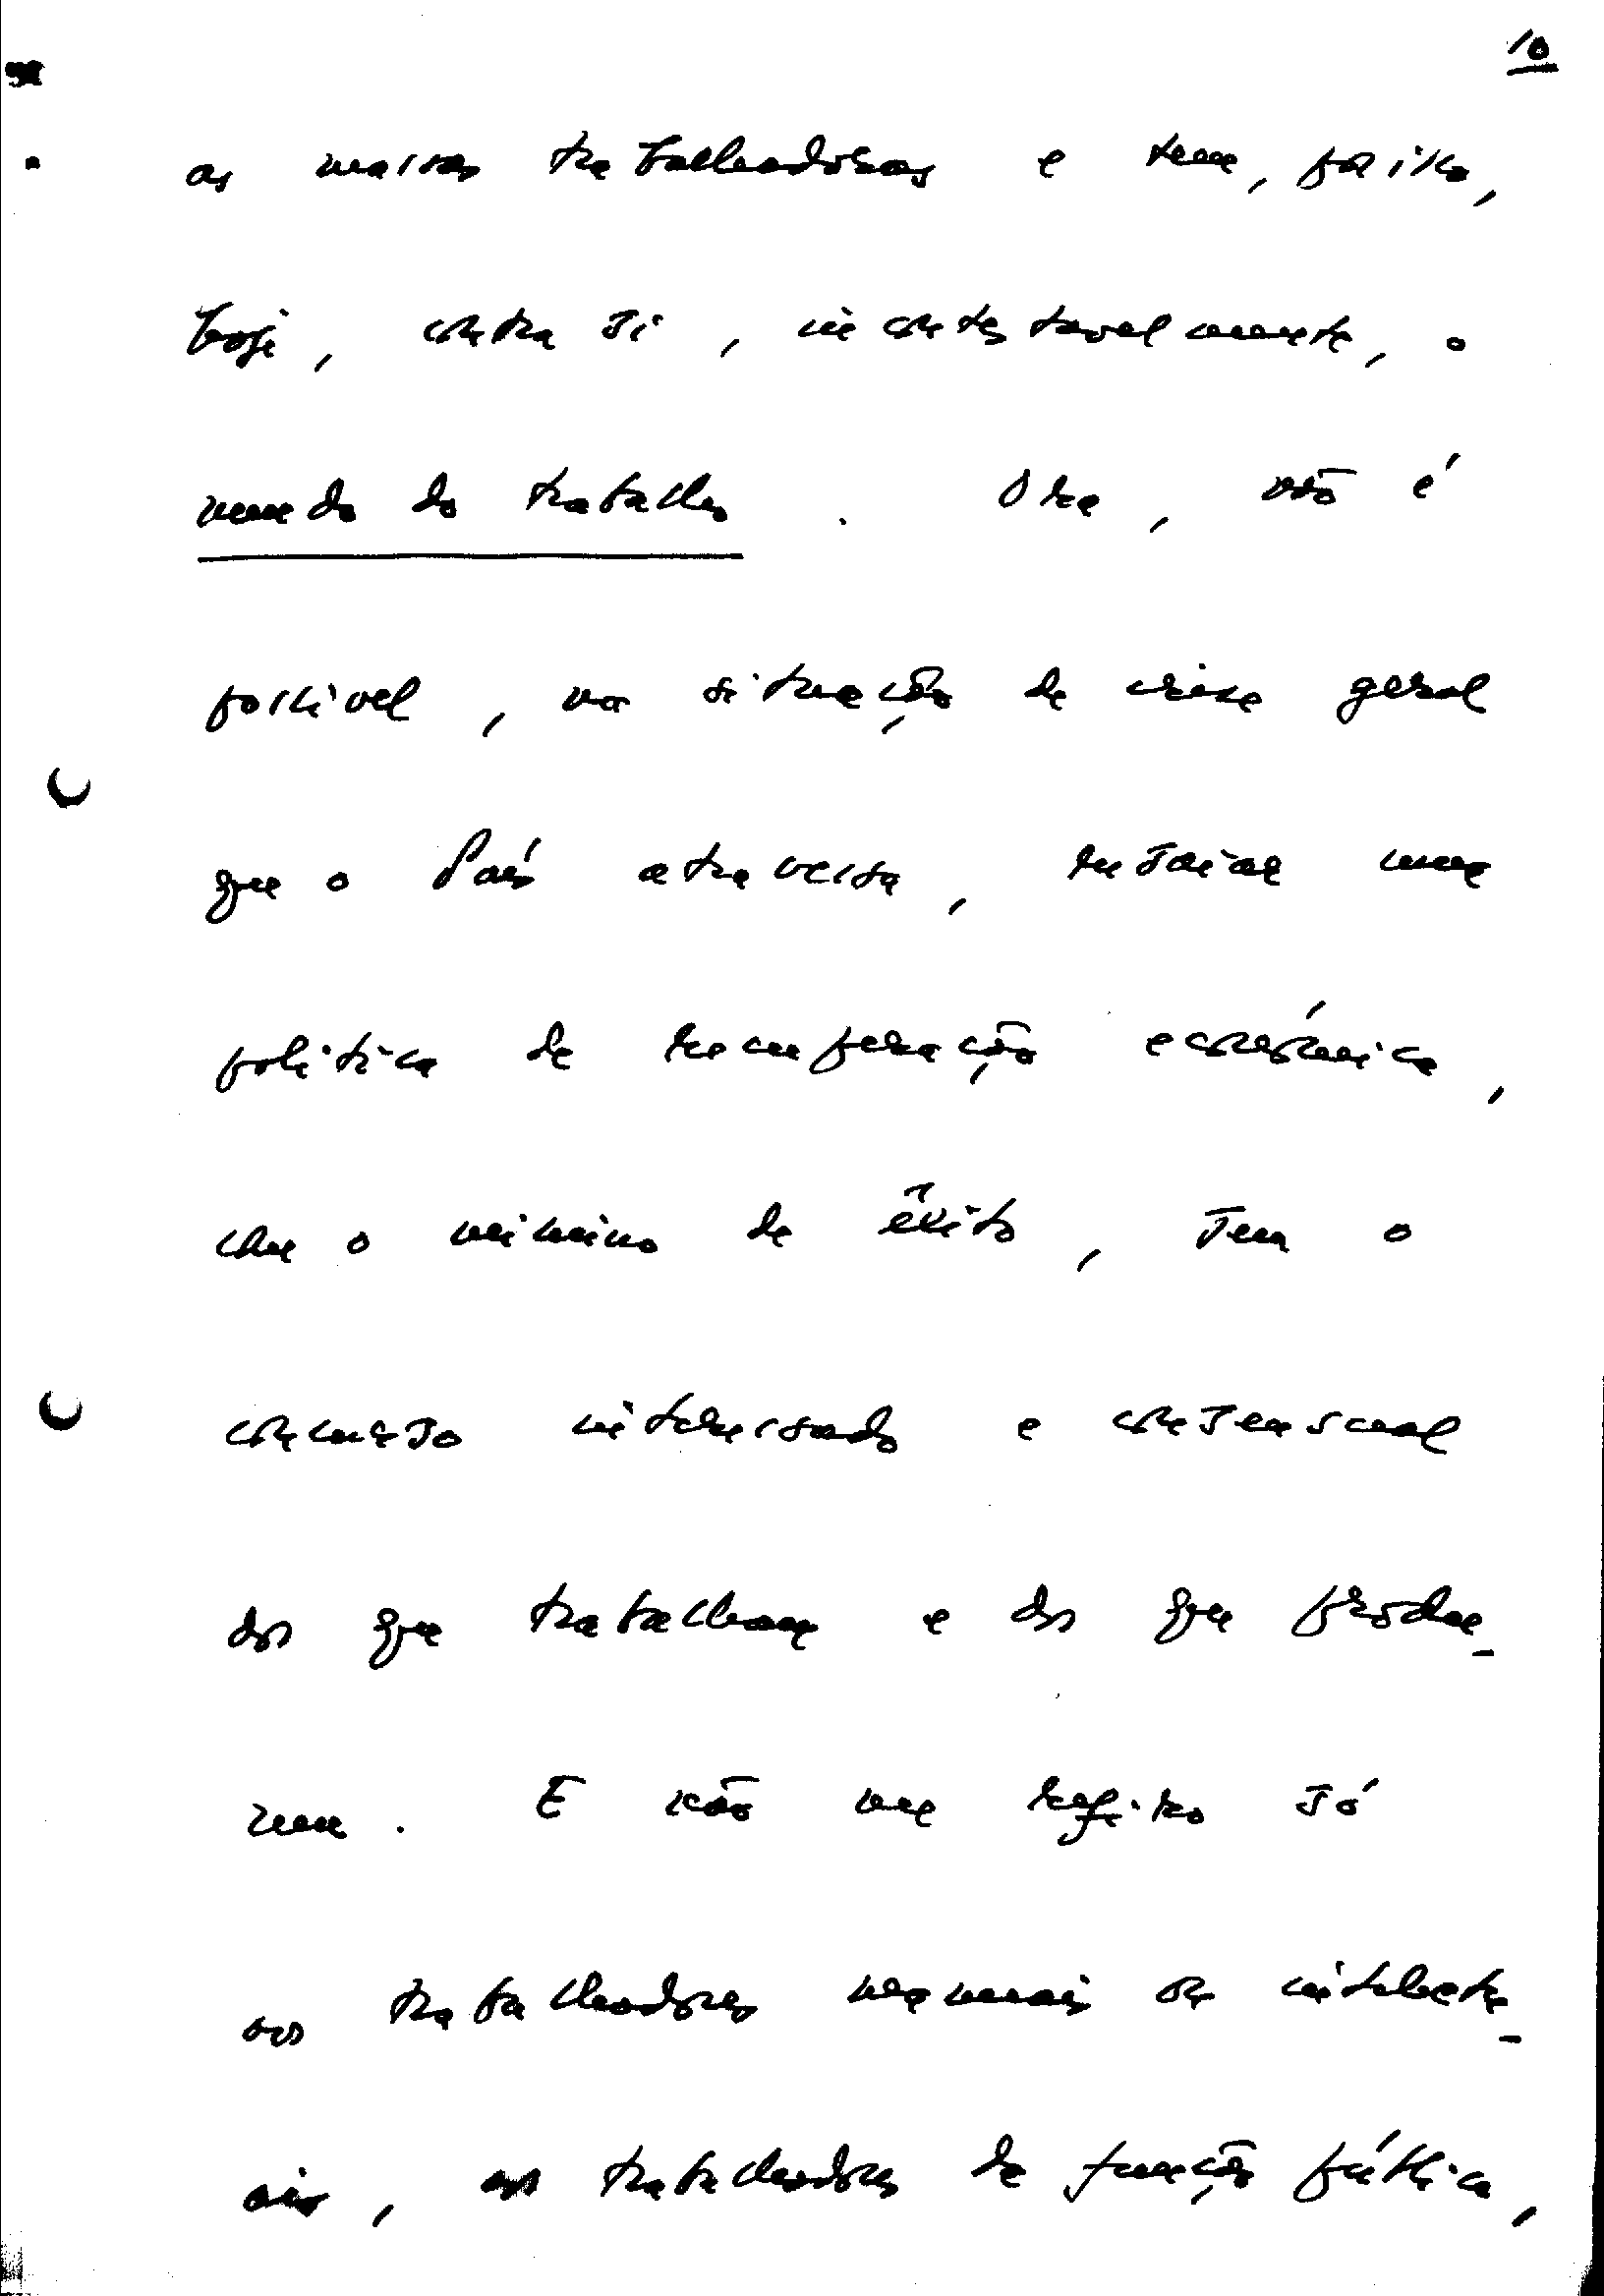 10
as massas trabalhadoras e tem, por isso,
hoje, contra si, incontestavelmente, o
mundo do trabalho. Ora, não é
possível, na situação de crise geral
que o País atravessa, ensaiar uma
política de recuperação económica,
com o mínimo de êxito, sem o
concurso interessado e consensual
dos que trabalham e dos que produ-
zem. E não me refiro só
aos trabalhadores manuais ou intelectu-
ais, aos trabalhadores da função pública,